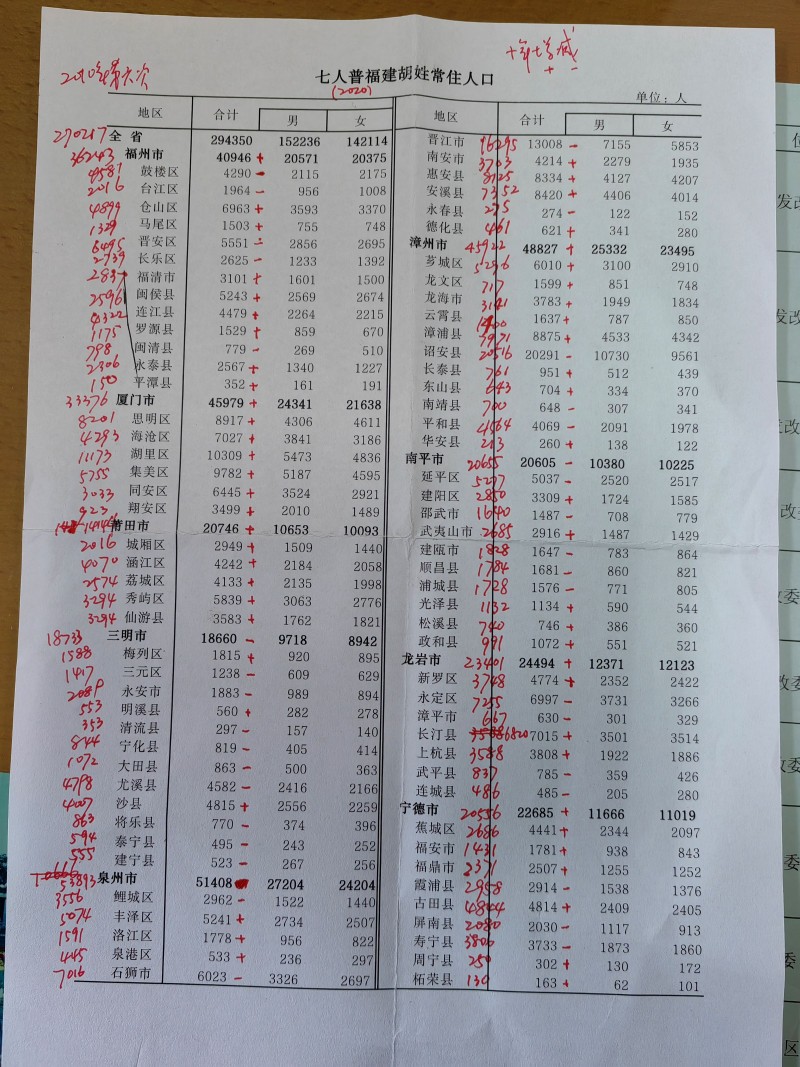 十年增减
+ -
2010年第六次
七人普福建胡姓常住人口
(2020)
单位：人
地区 合计 男 女
270217 全省 294350 152236 142114
36243 福州市 40946 + 20571 20375
4581 鼓楼区 4290 - 2115 2175
2016 台江区 1964 - 956 1008
4899 仓山区 6963 + 3593 3370
1329 马尾区 1503 + 755 748
6495 晋安区 5551 - 2856 2695
2939 长乐区 2625 - 1233 1392
2837 福清市 3101 + 1601 1500
2596 闽侯县 5243 + 2569 2674
4322 连江县 4479 + 2264 2215
1175 罗源县 1529 + 859 670
798 闽清县 779 - 269 510
2306 永泰县 2567 + 1340 1227
150 平潭县 352 + 161 191
33376 厦门市 45979 + 24341 21638
8201 思明区 8917 + 4306 4611
4293 海沧区 7027 + 3841 3186
11173 湖里区 10309 + 5473 4836
5755 集美区 9782 + 5187 4595
3033 同安区 6445 + 3524 2921
923 翔安区 3499 + 2010 1489
莆田市 20746 + 10653 10093
2016 城厢区 2949 + 1509 1440
4070 涵江区 4242 + 2184 2058
2574 荔城区 4133 + 2135 1998
3294 秀屿区 5839 + 3063 2776
3294 仙游县 3583 + 1762 1821
18733 三明市 18660 - 9718 8942
1588 梅列区 1815 + 920 895
1417 三元区 1238 - 609 629
永安市 1883 - 989 894
553 明溪县 560 + 282 278
353 清流县 297 - 157 140
844 宁化县 819 - 405 414
1072 大田县 863 - 500 363
4798 尤溪县 4582 - 2416 2166
4007 沙县 4815 + 2556 2259
863 将乐县 770 - 374 396
594 泰宁县 495 - 243 252
555 建宁县 523 - 267 256
53893 泉州市 51408 27204 24204
3556 鲤城区 2962 - 1522 1440
5074 丰泽区 5241 + 2734 2507
1591 洛江区 1778 + 956 822
445 泉港区 533 + 236 297
7016 石狮市 6023 - 3326 2697
地区 合计 男 女
晋江市 16295 13008 - 7155 5853
南安市 3703 4214 + 2279 1935
惠安县 8125 8334 + 4127 4207
安溪县 7352 8420 + 4406 4014
永春县 275 274 - 122 152
德化县 461 621 + 341 280
漳州市 45922 48827 + 25332 23495
芗城区 5296 6010 + 3100 2910
龙文区 717 1599 + 851 748
龙海市 3141 3783 + 1949 1834
云霄县 1400 1637 + 787 850
漳浦县 7971 8875 + 4533 4342
诏安县 20516 20291 - 10730 9561
长泰县 761 951 + 512 439
东山县 643 704 + 334 370
南靖县 700 648 - 307 341
平和县 4564 4069 - 2091 1978
华安县 213 260 + 138 122
南平市 20655 20605 - 10380 10225
延平区 5277 5037 - 2520 2517
建阳区 2850 3309 + 1724 1585
邵武市 1640 1487 - 708 779
武夷山市 2685 2916 + 1487 1429
建瓯市 1828 1647 - 783 864
顺昌县 1784 1681 - 860 821
浦城县 1728 1576 - 771 805
光泽县 1132 1134 + 590 544
松溪县 740 746 + 386 360
政和县 991 1072 + 551 521
龙岩市 23401 24494 + 12371 12123
新罗区 3748 4774 + 2352 2422
永定区 7255 6997 - 3731 3266
漳平市 667 630 - 301 329
长汀县 6820 7015 + 3501 3514
上杭县 3588 3808 + 1922 1886
武平县 837 785 - 359 426
连城县 486 485 - 205 280
宁德市 20556 22685 + 11666 11019
蕉城区 2686 4441 + 2344 2097
福安市 1431 1781 + 938 843
福鼎市 2371 2507 + 1255 1252
霞浦县 2958 2914 - 1538 1376
古田县 4844 4814 + 2409 2405
屏南县 2080 2030 - 1117 913
寿宁县 3806 3733 - 1873 1860
周宁县 250 302 + 130 172
柘荣县 130 163 + 62 101